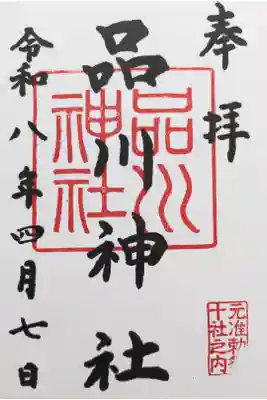 奉拝
品川神社
品川神社
元准勅
十社之内
令和八年四月七日